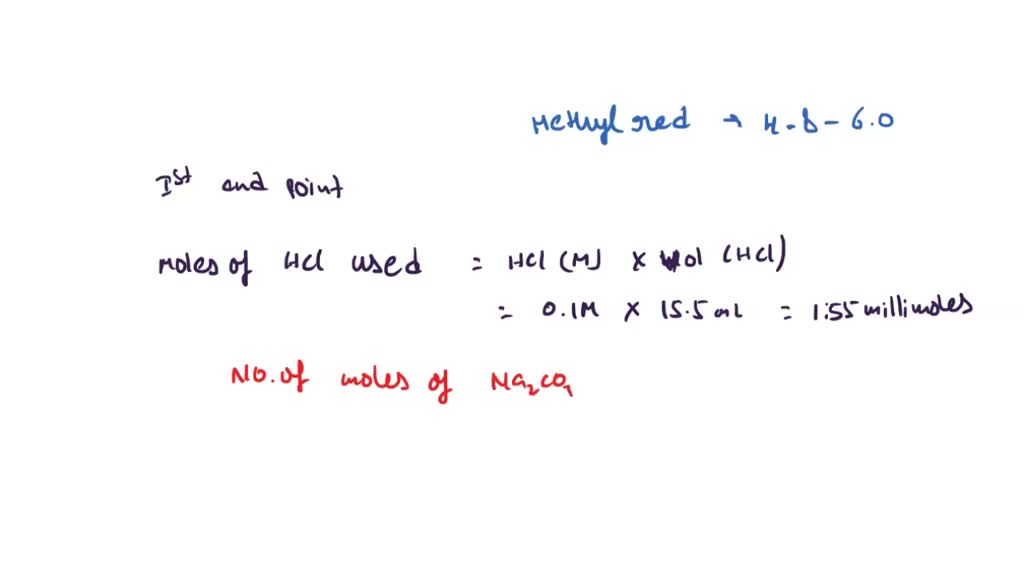 Methyl red → 4.8 - 6.0
Ist end point
Moles of HCl used = HCl (M) x vol (HCl)
= 0.1M x 15.5 mL = 1.55 millimoles
No. of moles of Na2CO3